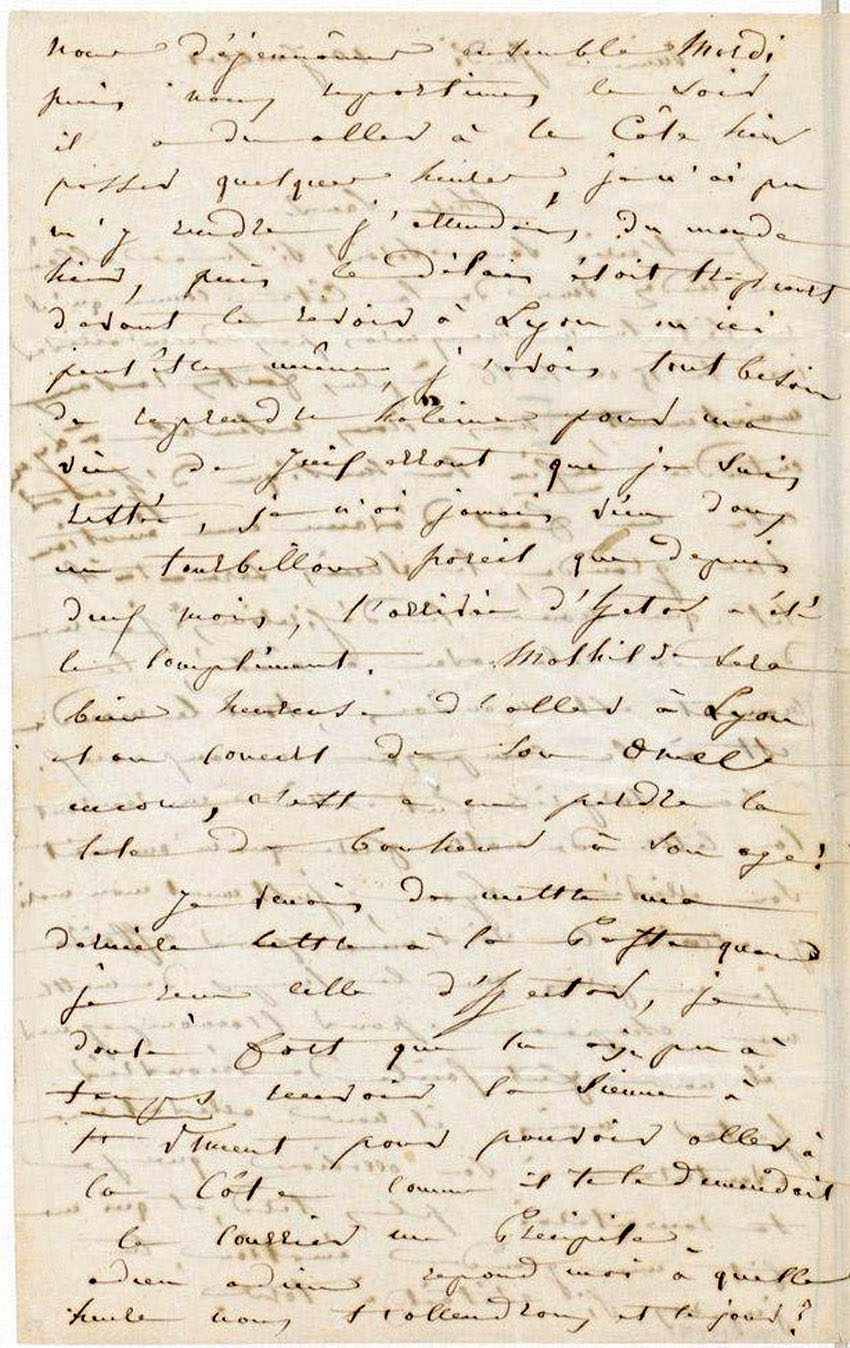 nous déjeunâmes ensemble Mardi
puis nous repartimes le soir
il a du aller à la Côte hier
passer quelques heures, je n'ai pu
m'y rendre j'attendais du monde
hier, puis le délais était trop court
devant le revoir à Lyon ou ici
peut être même, j'avois tout besoin
de reprendre haleine pour ma
vie de Juif errant que je suis
rettré, je n'ai jamais vécu dans
un tourbillon pareil que depuis
deux mois, l'arrivée d'Hector a été
le complément. Mathilde sera
bien heureuse d'aller à Lyon
et au concert de son Oncle
encore, c'est a en perdre la
tete de bonheur à son age!
Je venais de mettre ma
dernière lettre à la Poste quand
je reçu celle d'Hector, je
doute fort que tu aye pu à
temps recevoir la sienne à
pour pouvoir aller à
la Côte comme il te le demandait
le courrier me Précipite
adieu adieu repond moi à quelle
heure nous t'attendrons et le jour?